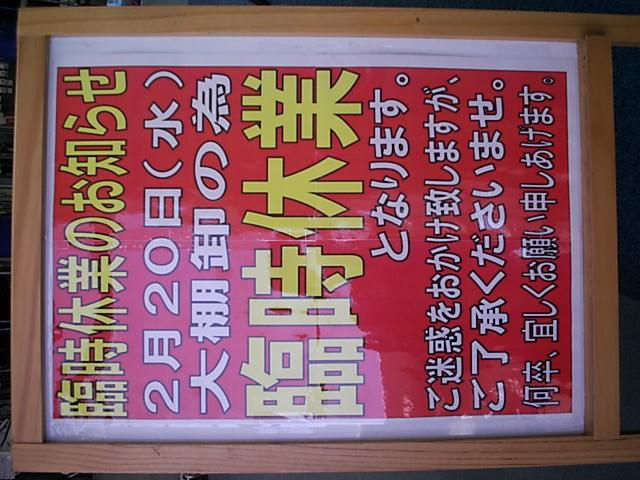 臨時休業のお知らせ
2月20日(水)
大棚卸の為
臨時休業
となります。
ご迷惑をおかけ致しますが、
ご了承くださいませ。
何卒、宜しくお願い申しあげます。